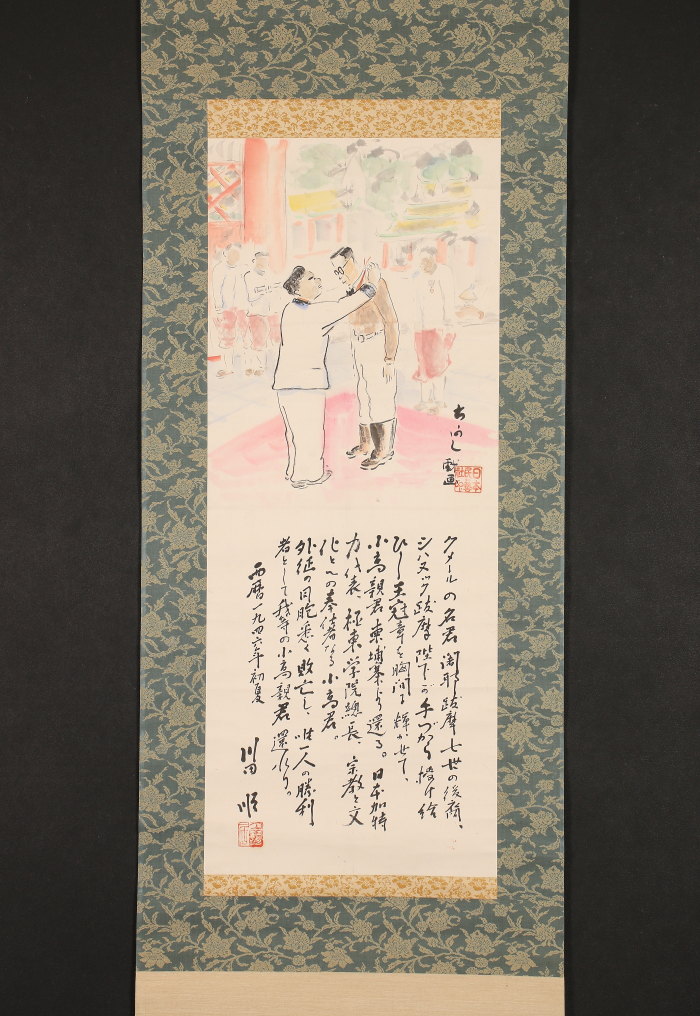 戯画
クメールの名君闍耶跋摩七世の後裔、
シハヌック跋摩陛下の手づから掛け給
ひし王冠章を胸間に輝かせて、
小高親君柬埔寨より還る。日本加特
力代表、極東学院總長、宗教と文
化とへの奉仕者なる小高君。
外征の同胞悉く敗亡し、唯一人の勝利
者として我等の小高親君還れり。
西暦一九四六年初夏
川田順